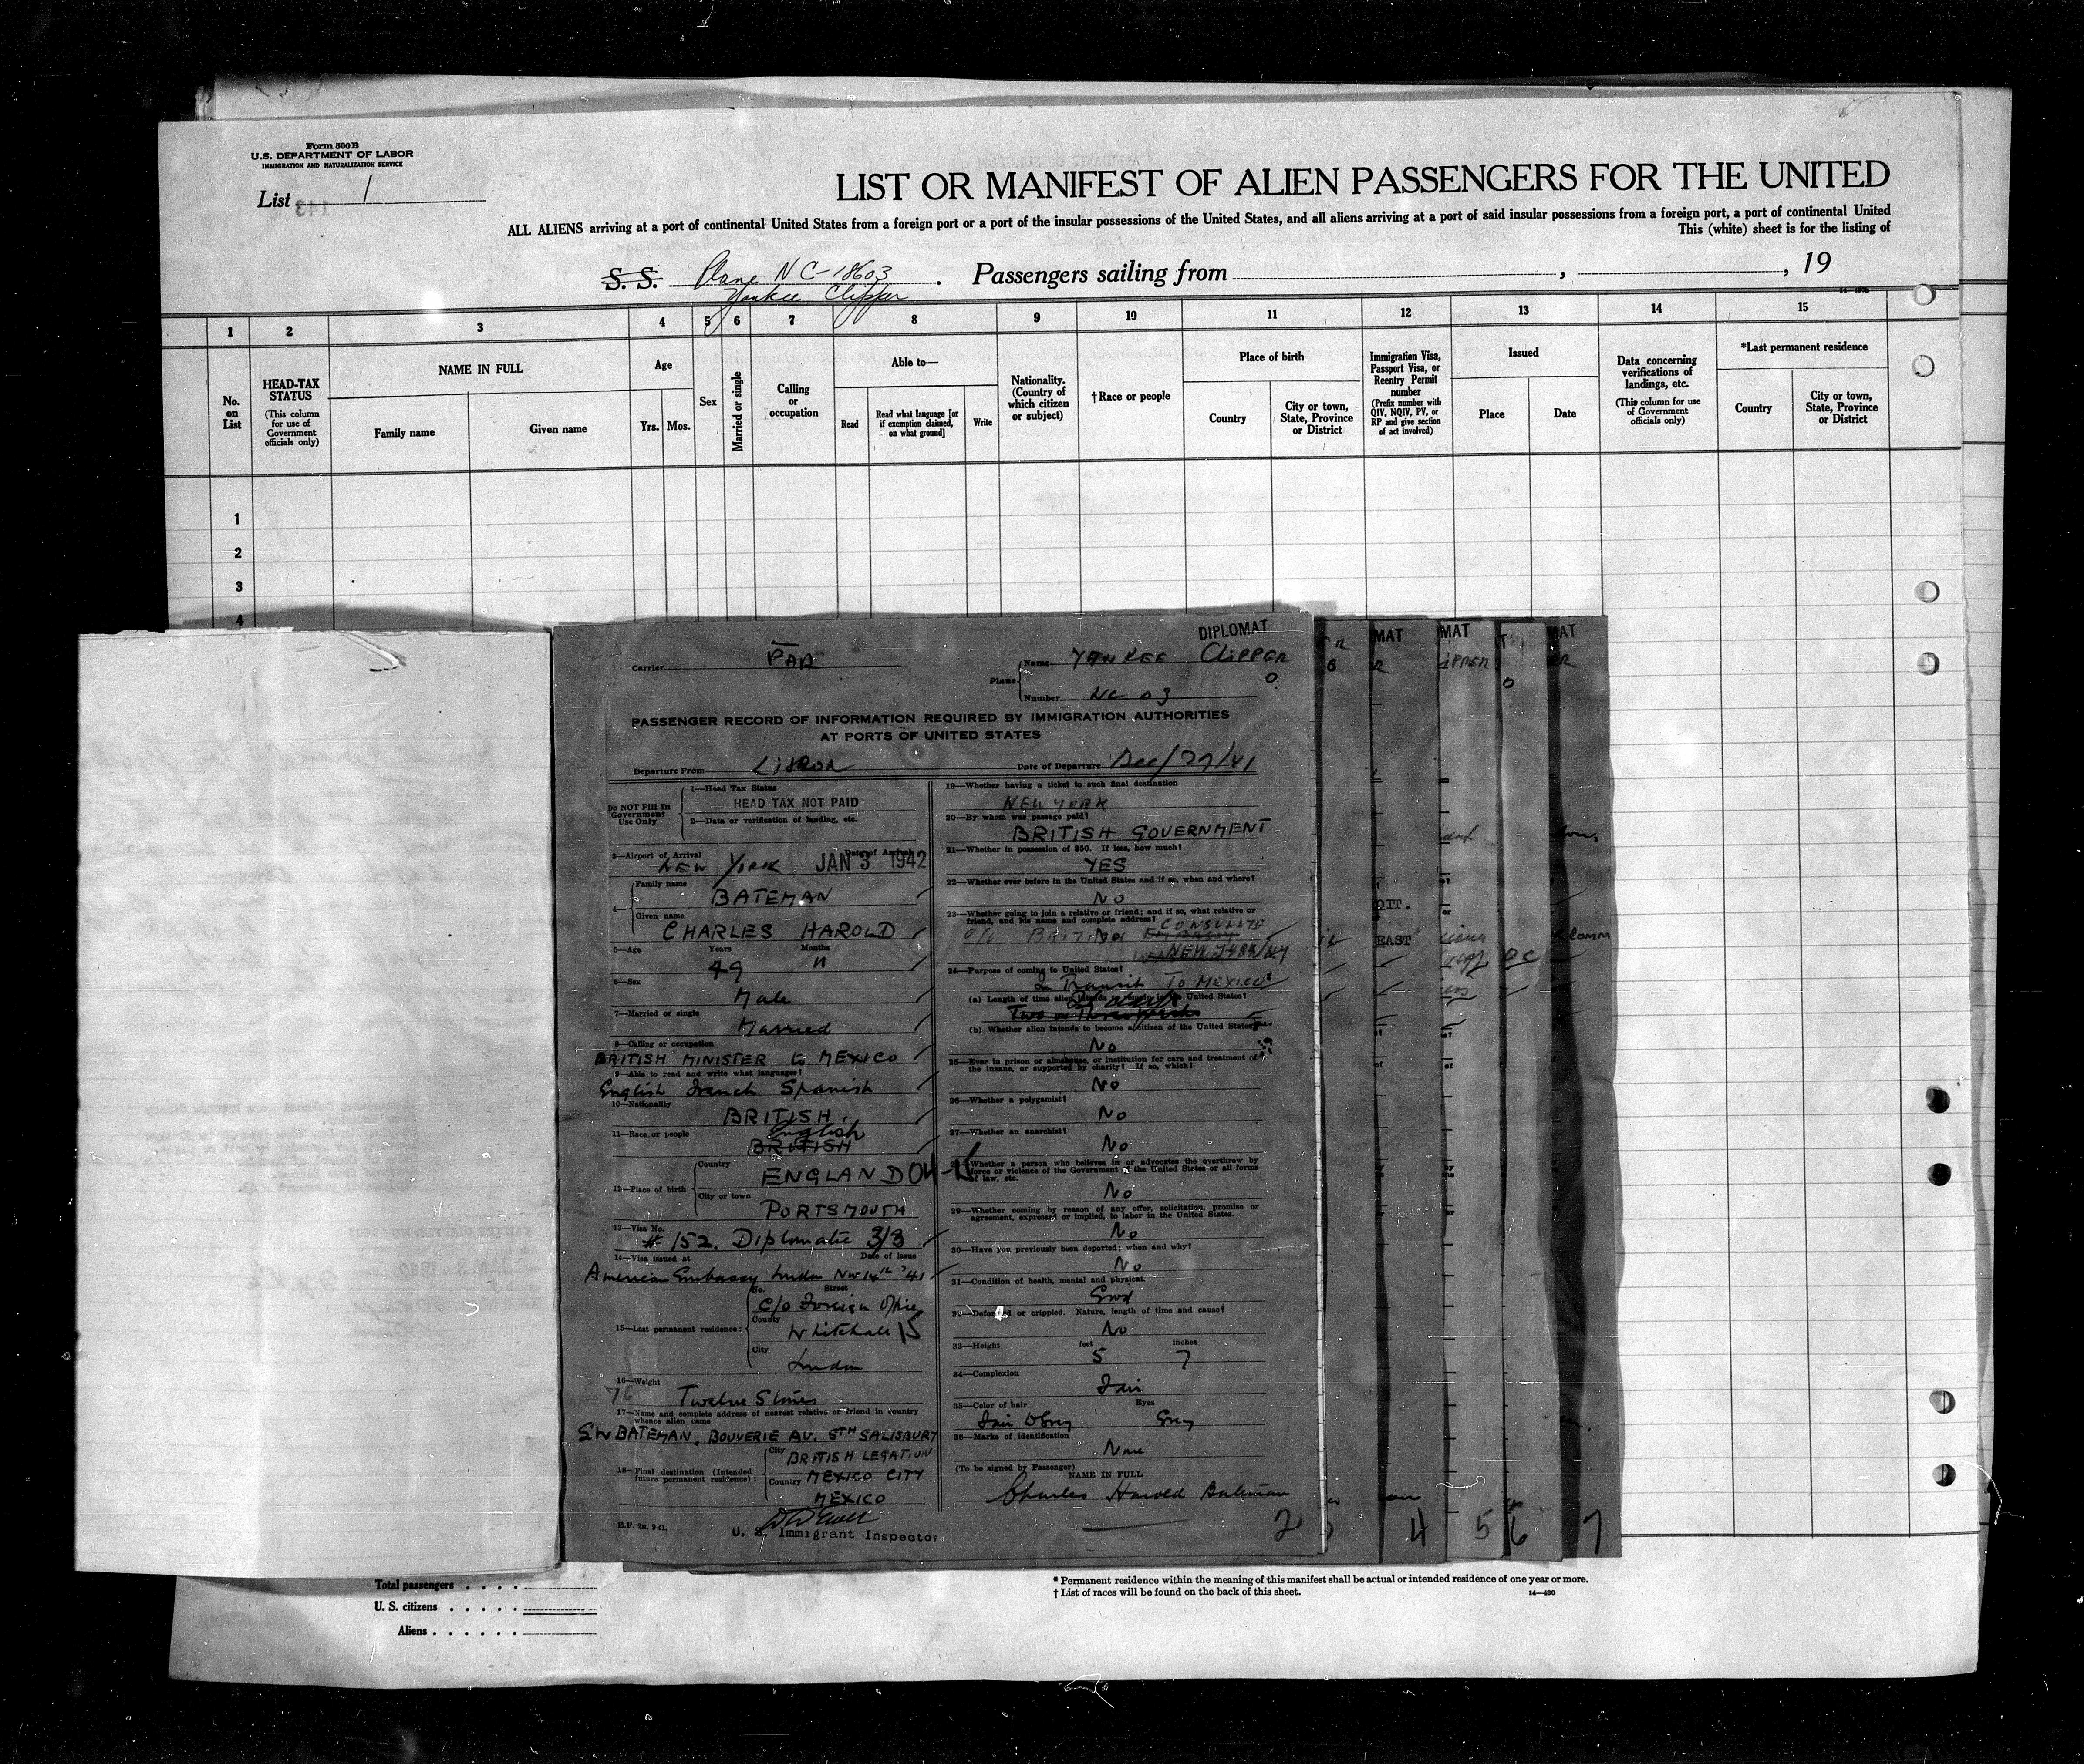 Form 500B
U.S. DEPARTMENT OF LABOR
IMMIGRATION AND NATURALIZATION SERVICE
List 1
LIST OR MANIFEST OF ALIEN PASSENGERS FOR THE UNITED
ALL ALIENS arriving at a port of continental United States from a foreign port or a port of the insular possessions of the United States, and all aliens arriving at a port of said insular possessions from a foreign port, a port of continental United
This (white) sheet is for the listing of
S. S. Plane NC-18603 Passengers sailing from , , 19
Yankee Clipper
1 2 3 4 5 6 7 8 9 10 11 12 13 14 15
No. on List
HEAD-TAX STATUS
(This column for use of Government officials only)
NAME IN FULL
Family name
Given name
Age
Yrs. Mos.
Sex
Married or single
Calling or occupation
Able to—
Read
Read what language [or if exemption claimed, on what ground]
Write
Nationality. (Country of which citizen or subject)
†Race or people
Place of birth
Country
City or town, State, Province or District
Immigration Visa, Passport Visa, or Reentry Permit number
(Prefix number with QIV, NQIV, PV, or RP and give section of act involved)
Issued
Place
Date
Data concerning verifications of landings, etc.
(This column for use of Government officials only)
*Last permanent residence
Country
City or town, State, Province or District
1
2
3
4
DIPLOMAT
Carrier PAA
Plane Name YANKEE CLIPPER
Number NC 03
PASSENGER RECORD OF INFORMATION REQUIRED BY IMMIGRATION AUTHORITIES
AT PORTS OF UNITED STATES
Departure From LISBOA Date of Departure Dec/27/41
Do NOT Fill In Government Use Only
1—Head Tax Status
HEAD TAX NOT PAID
2—Data or verification of landing, etc.
3—Airport of Arrival Date of Arrival
NEW YORK JAN 3 1942
4— Family name
BATEMAN
Given name
CHARLES HAROLD
5—Age Years Months
49 11
6—Sex
Male
7—Married or single
Married
8—Calling or occupation
BRITISH MINISTER to MEXICO
9—Able to read and write what languages?
English French Spanish
10—Nationality
BRITISH.
11—Race or people
English
BRITISH
12—Place of birth
Country
ENGLAND
City or town
PORTSMOUTH
13—Visa No.
# 152. Diplomatic 3/3
14—Visa issued at Date of Issue
American Embassy London Nov 14th '41
15—Last permanent residence:
No. Street
C/o Foreign Office
County
Whitehall
City
London
16—Weight
Twelve Stones
17—Name and complete address of nearest relative or friend in country whence alien came
BATEMAN, BOUVERIE AV. STH SALISBURY
18—Final destination (Intended future permanent residence):
City BRITISH LEGATION
Country MEXICO CITY
MEXICO
U. S. Immigrant Inspector
19—Whether having a ticket to such final destination
NEW YORK
20—By whom was passage paid?
BRITISH GOVERNMENT
21—Whether in possession of $50. If less, how much?
YES
22—Whether ever before in the United States and if so, when and where?
No
23—Whether going to join a relative or friend; and if so, what relative or friend, and his name and complete address?
No
CONSULATE
EMBASSY
NEW YORK
24—Purpose of coming to United States?
In Transit TO MEXICO
(a) Length of time alien intends to remain in the United States?
(b) Whether alien intends to become a citizen of the United States
No
25—Ever in prison or almshouse, or institution for care and treatment of the insane, or supported by charity? If so, which?
No
26—Whether a polygamist?
No
27—Whether an anarchist?
No
Whether a person who believes in or advocates the overthrow by force or violence of the Government of the United States or all forms of law, etc.
No
29—Whether coming by reason of any offer, solicitation, promise or agreement, express or implied, to labor in the United States.
No
30—Have you previously been deported; when and why?
No
31—Condition of health, mental and physical.
Good
32—Deformed or crippled. Nature, length of time and cause?
No
33—Height feet inches
5 7
34—Complexion
Fair
35—Color of hair Eyes
Fair Grey
36—Marks of identification
None
(To be signed by Passenger)
NAME IN FULL
Charles Harold Bateman
2 4 5 6 7
MAT
MAT
EAST
Total passengers
U. S. citizens
Aliens
* Permanent residence within the meaning of this manifest shall be actual or intended residence of one year or more.
† List of races will be found on the back of this sheet.